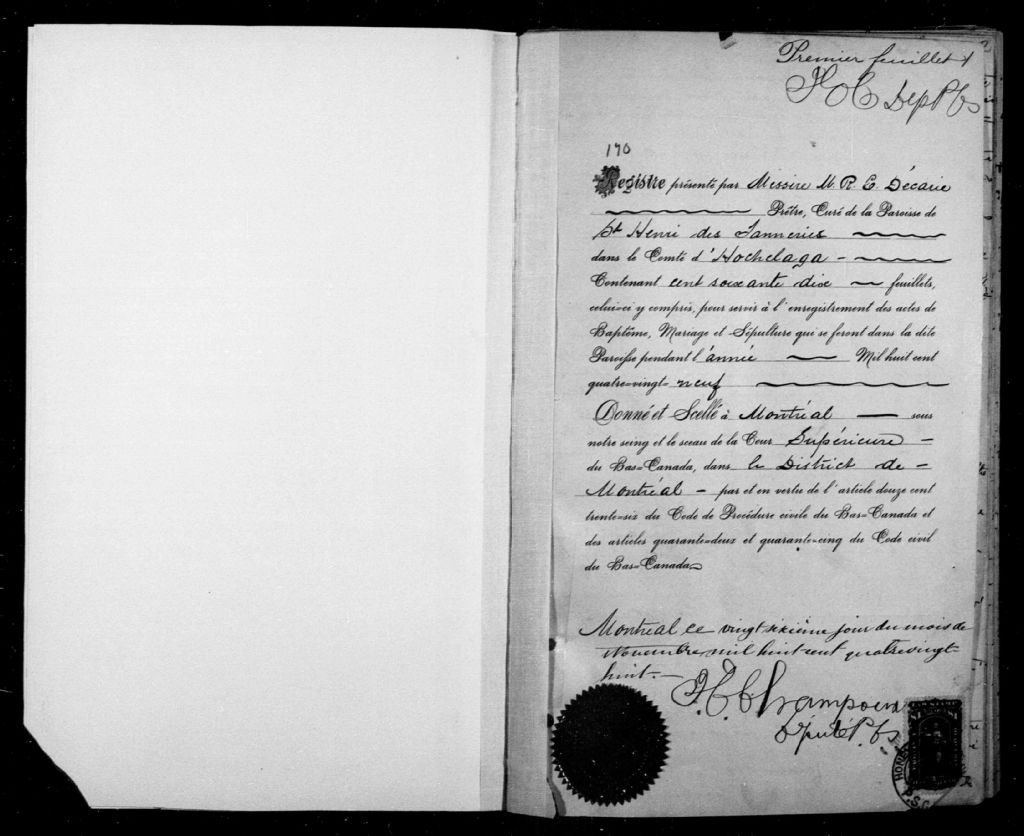 Premier feuillet
HC Dep P Cs
170
Registre présenté par Messire M. R. E. Décarie
Prêtre, Curé de la Paroisse de
St Henri des Tanneries
dans le Comté d'Hochelaga
Contenant cent soixante dix feuillets,
celui-ci y compris, pour servir à l'enregistrement des actes de
Baptême, Mariage et Sépulture qui se feront dans la dite
Paroisse pendant l'année Mil huit cent
quatre=vingt= neuf
Donné et Scellé à Montréal sous
notre seing et le sceau de la Cour Supérieure
du Bas=Canada, dans le District de
Montréal par et en vertu de l'article douze cent
trente=six du Code de Procédure civile du Bas=Canada et
des articles quarante=deux et quarante=cinq du Code civil
du Bas=Canada
Montréal ce vingt sixième jour du mois de
Novembre mil huit cent quatrevingt-
huit.
Député P. Cs